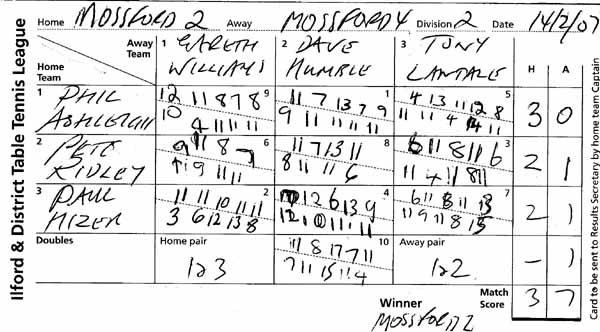 Ilford & District Table Tennis League
Home MOSSFORD 2 Away MOSSFORD 4 Division 2 Date 14/2/07
Away Team 1 GARETH WILLIAMS 2 DAVE HUMBLE 3 TONY H A
Home Team
1 PHIL ASHLEIGH 9 1 5 3 0
12 11 8 7 8 11 7 13 7 9 4 13 11 12 8
10 4 11 11 11 9 11 11 11 11 11 11 4 14 11
2 PETE RIDLEY 6 8 3 2 1
9 11 8 7 11 7 13 11 6 11 8 11 6
11 9 11 11 8 11 11 6 11 4 11 8 11
3 PAUL 2 4 7 2 1
11 11 10 11 11 12 6 13 9 6 11 8 11 13
3 6 12 13 8 12 10 11 11 11 9 11 8 15
Doubles Home pair 10 Away pair - 1
1 2 3 11 8 17 7 11 1 2 2
7 11 15 11 4
Winner MOSSFORD 2 Match Score 3 7
Card to be sent to Results Secretary by home team Captain